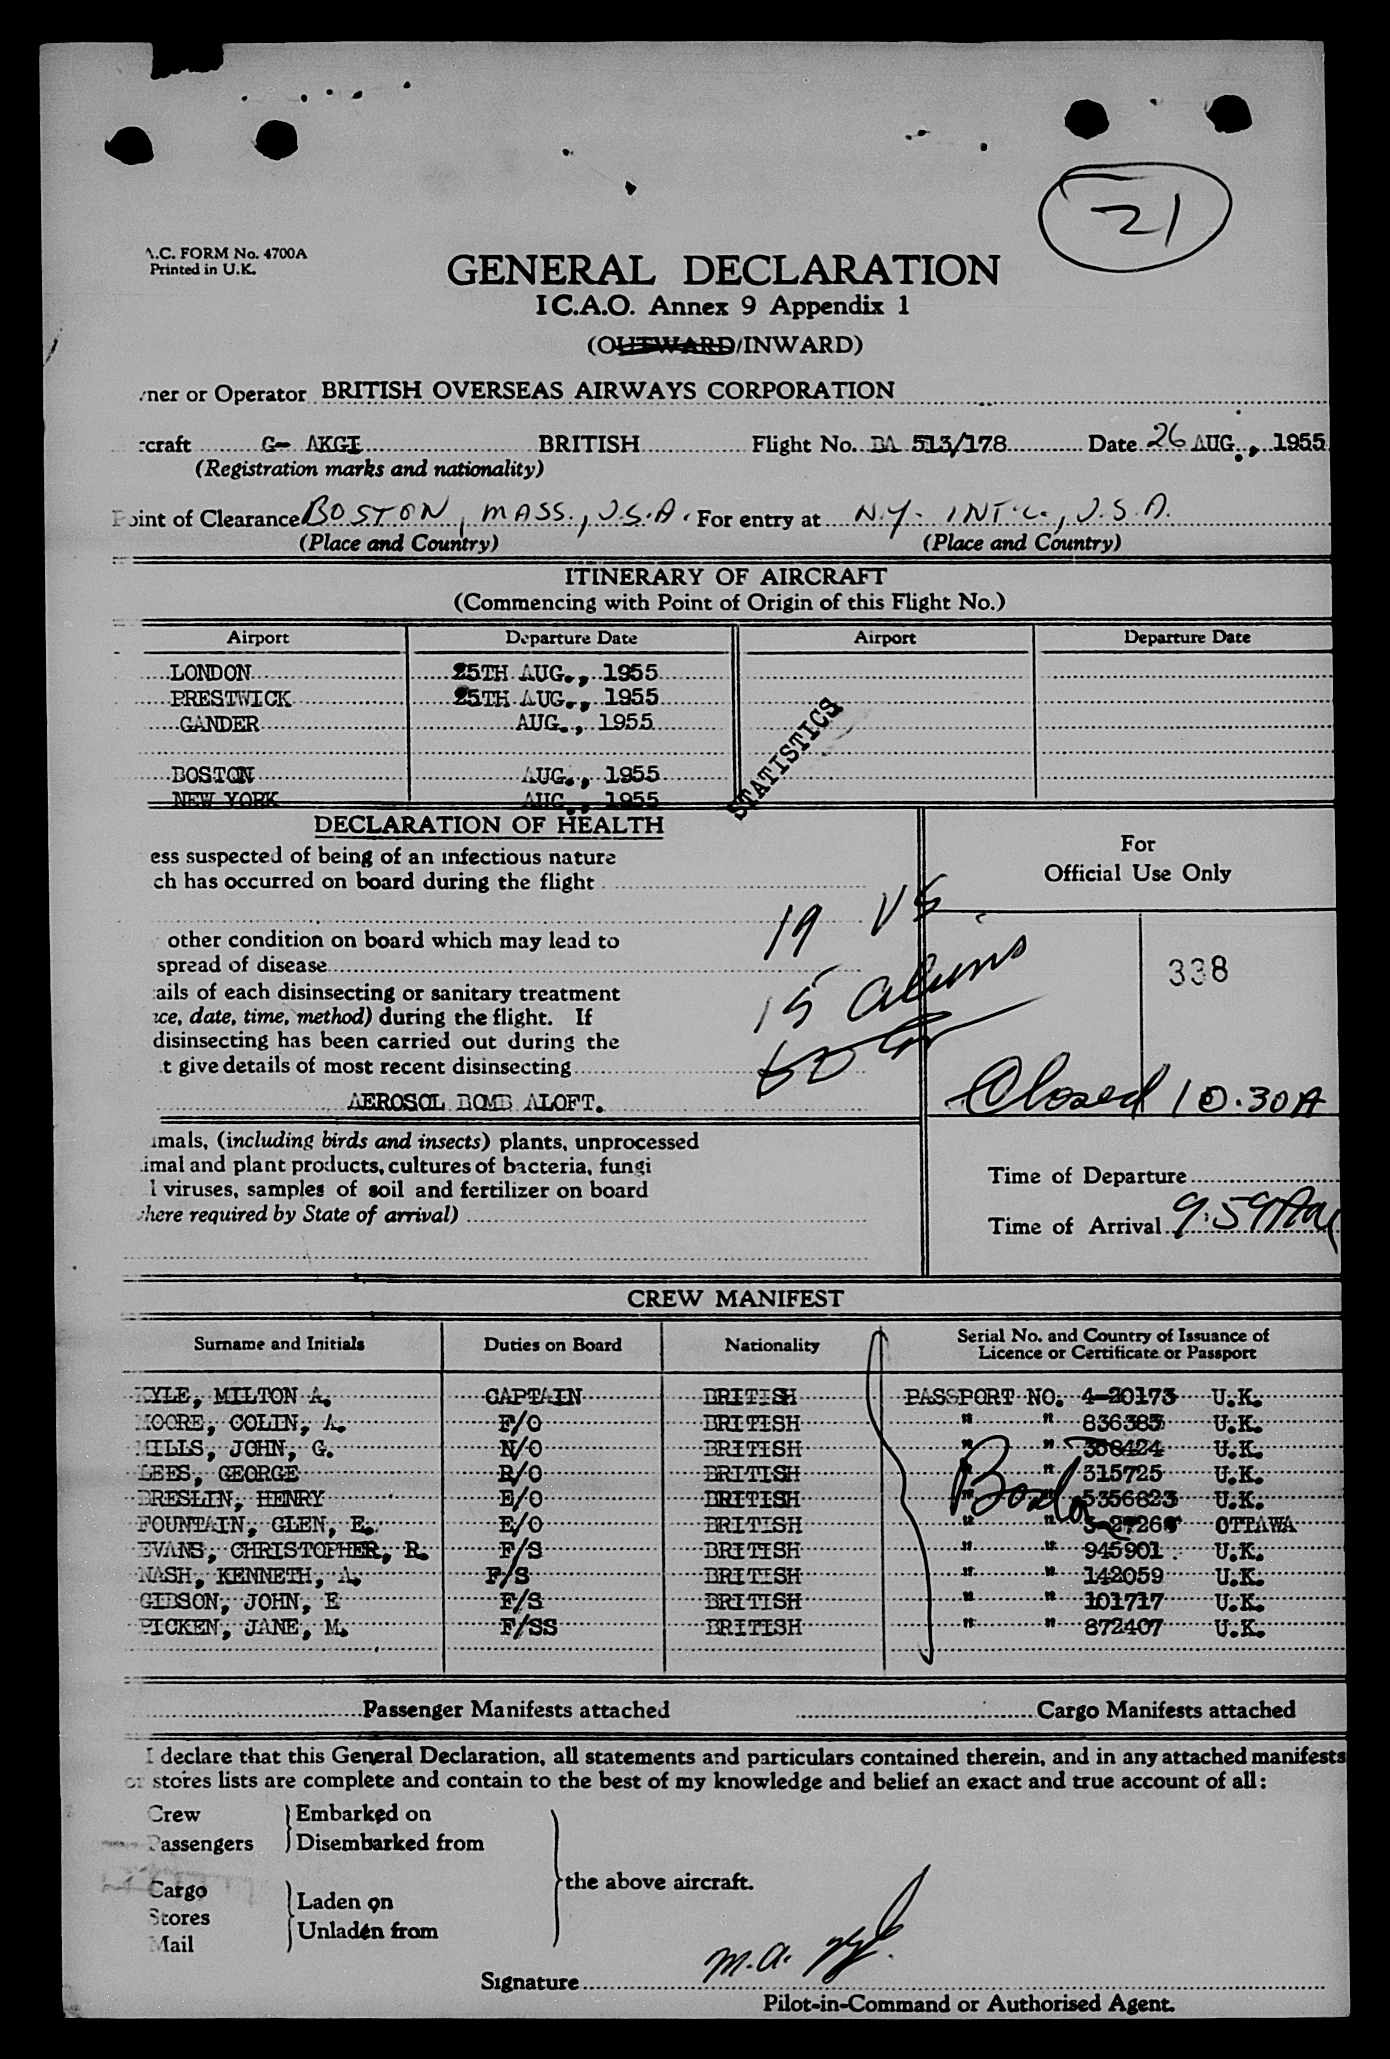 21
A.C. FORM No. 4700A
Printed in U.K.
GENERAL DECLARATION
I C.A.O. Annex 9 Appendix 1
(OUTWARD/INWARD)
ner or Operator BRITISH OVERSEAS AIRWAYS CORPORATION
rcraft G- AKGI BRITISH Flight No. BA 513/178 Date 26 AUG., 1955
(Registration marks and nationality)
Point of Clearance BOSTON, MASS., U.S.A. For entry at N.Y. INT'L., U.S.A.
(Place and Country) (Place and Country)
ITINERARY OF AIRCRAFT
(Commencing with Point of Origin of this Flight No.)
Airport Departure Date Airport Departure Date
LONDON 25TH AUG., 1955
PRESTWICK 25TH AUG., 1955
GANDER AUG., 1955
STATISTICS
BOSTON AUG., 1955
NEW YORK AUG., 1955
DECLARATION OF HEALTH
For
Official Use Only
ess suspected of being of an infectious nature
ch has occurred on board during the flight
19 US
other condition on board which may lead to
spread of disease
15 aliens
338
ails of each disinsecting or sanitary treatment
ce, date, time, method) during the flight. If
disinsecting has been carried out during the
t give details of most recent disinsecting
Closed 10.30A
AEROSOL BOMB ALOFT.
imals, (including birds and insects) plants, unprocessed
imal and plant products, cultures of bacteria, fungi
l viruses, samples of soil and fertilizer on board
here required by State of arrival)
Time of Departure
Time of Arrival 9:59 AM
CREW MANIFEST
Surname and Initials Duties on Board Nationality Serial No. and Country of Issuance of
Licence or Certificate or Passport
KYLE, MILTON A. CAPTAIN BRITISH PASSPORT NO. 4-20173 U.K.
MOORE, COLIN, A. F/O BRITISH " " 836385 U.K.
MILLS, JOHN, G. N/O BRITISH " " 358424 U.K.
LEES, GEORGE R/O BRITISH " " 315725 U.K.
BRESLIN, HENRY E/O BRITISH " " 5356823 U.K.
FOUNTAIN, GLEN, E. E/O BRITISH " " OTTAWA
EVANS, CHRISTOPHER, R. F/S BRITISH " " 945901 U.K.
NASH, KENNETH, A. F/S BRITISH " " 142059 U.K.
GIBSON, JOHN, E F/S BRITISH " " 101717 U.K.
PICKEN, JANE, M. F/SS BRITISH " " 872407 U.K.
Passenger Manifests attached Cargo Manifests attached
I declare that this General Declaration, all statements and particulars contained therein, and in any attached manifests
or stores lists are complete and contain to the best of my knowledge and belief an exact and true account of all:
Crew Embarked on
Passengers Disembarked from
the above aircraft.
Cargo Laden on
Stores
Unladen from
Mail
Signature M.A. Kyle.
Pilot-in-Command or Authorised Agent.